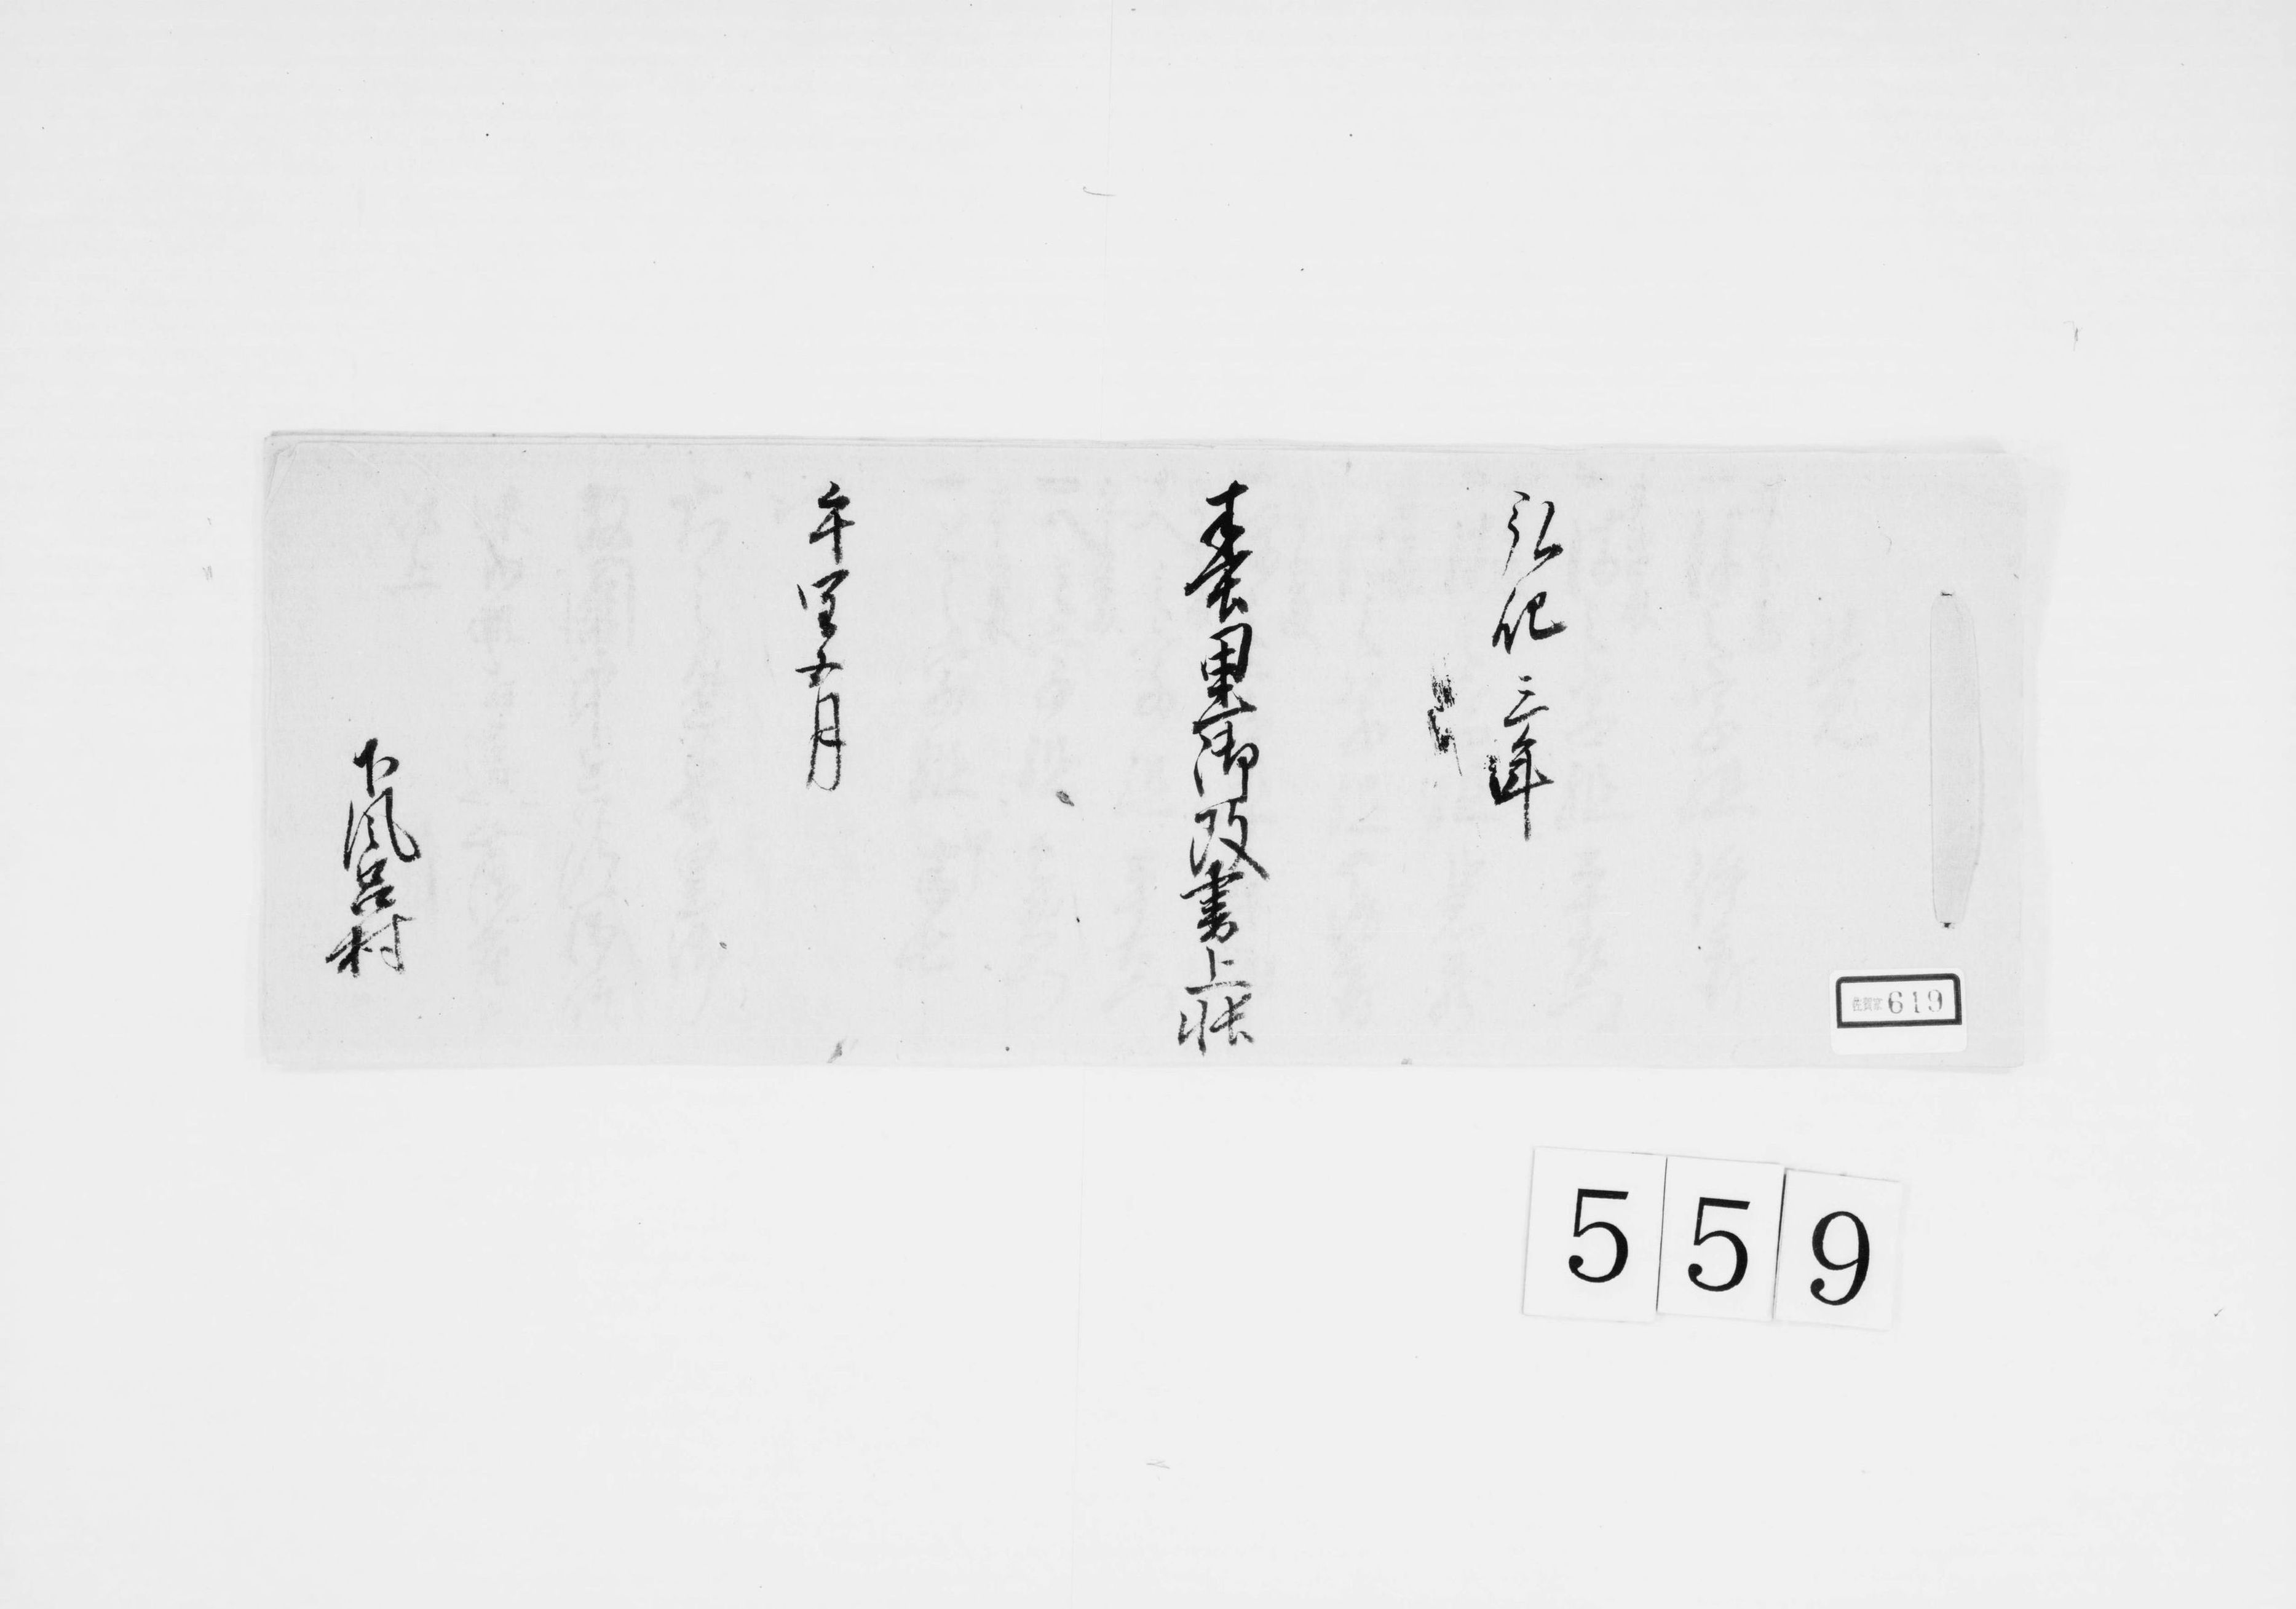 弘化三年
御改書上帳
午閏五月
下風呂村
佐賀家619
559